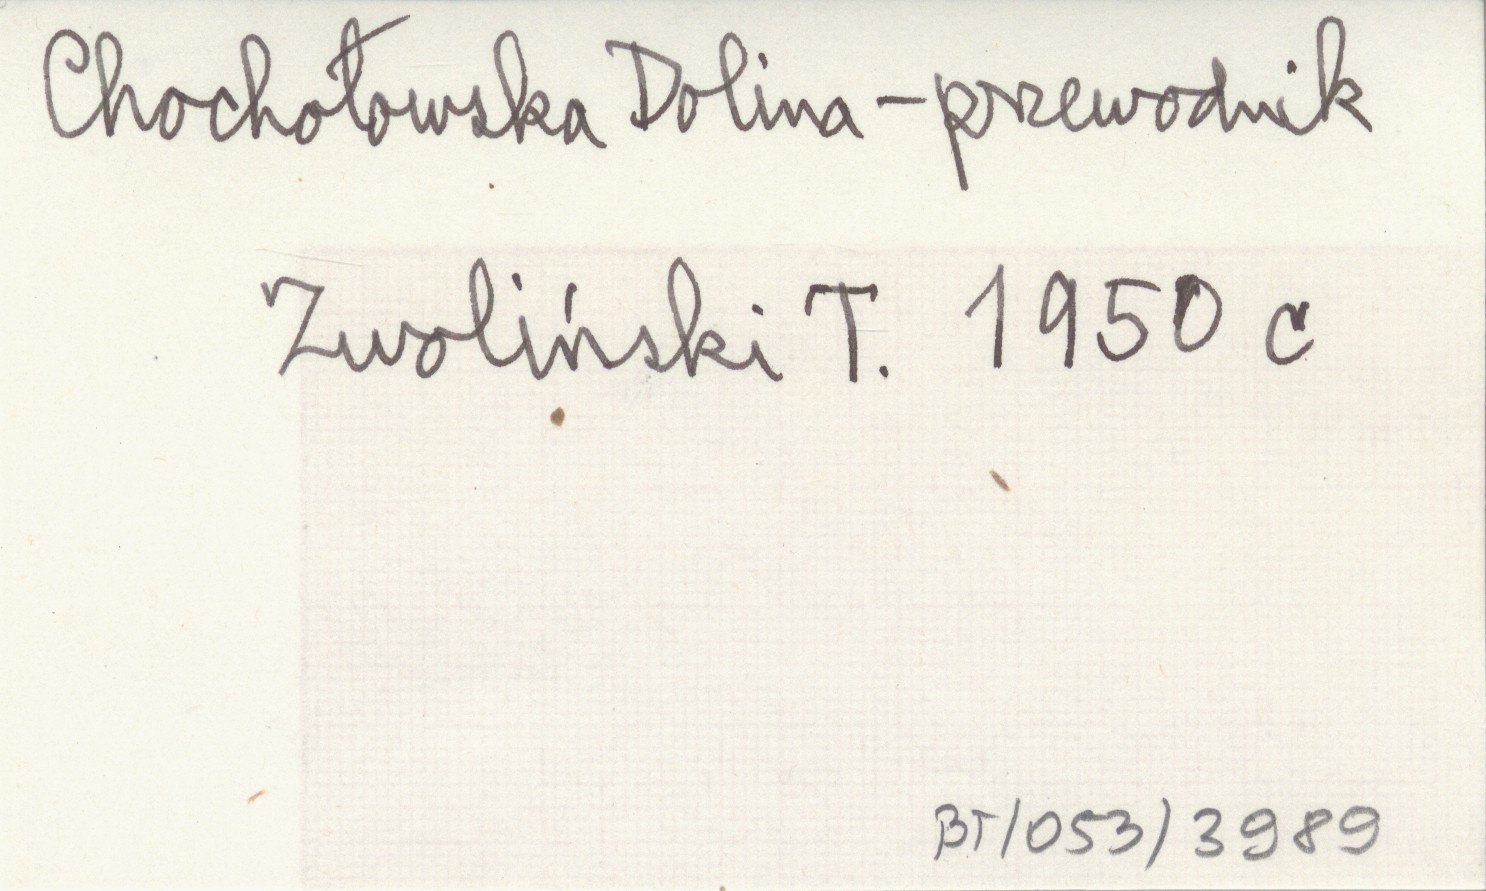 Chochołowska Dolina - przewodnik
Zwoliński T. 1950 c
BT/053/3989